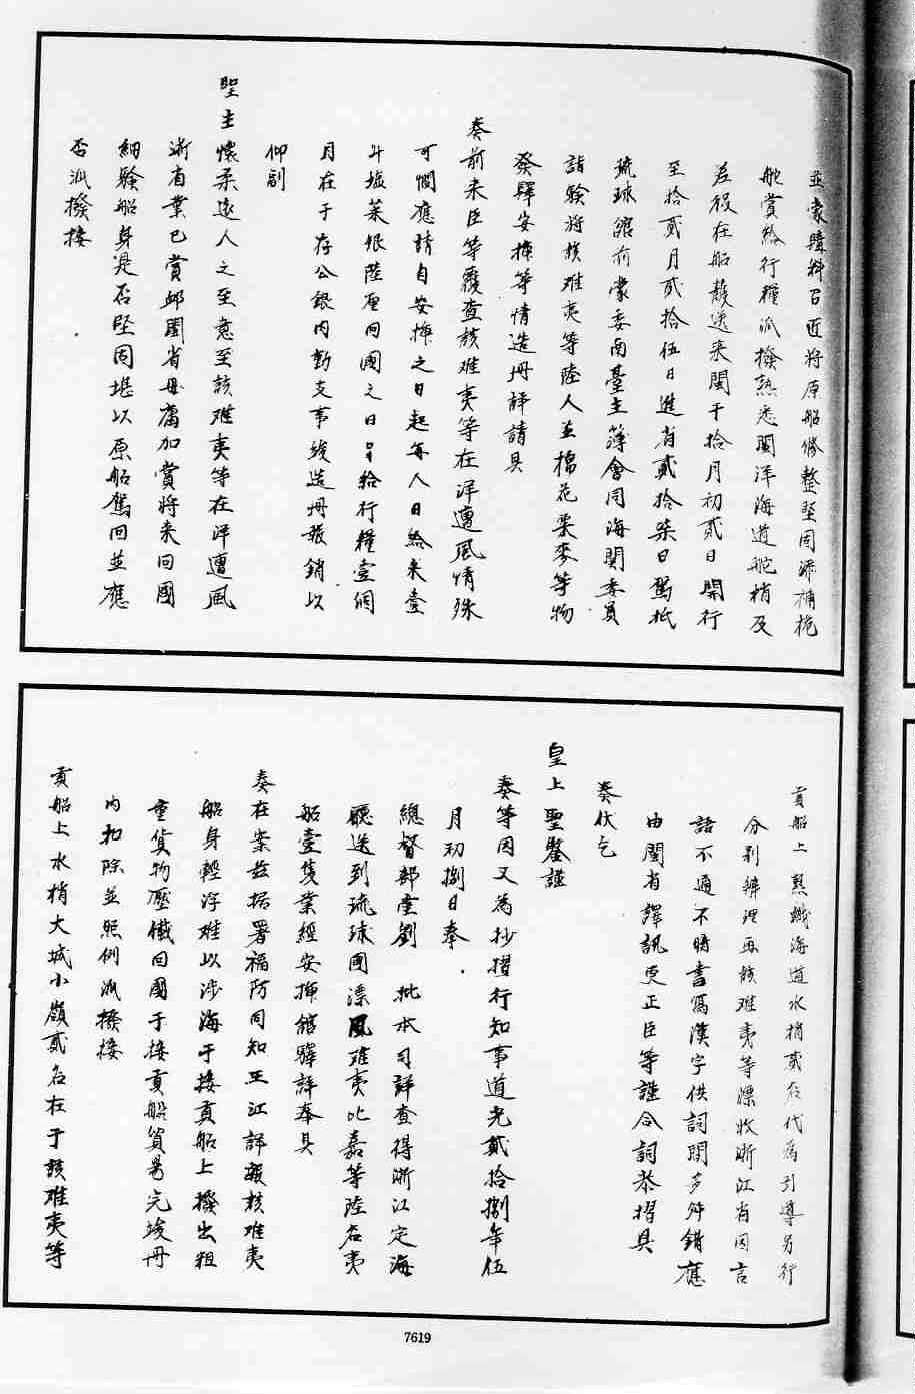 並蒙購料召匠將原船修整堅固添補桅
舵賞給行糧派撥熟悉閩洋海道舵梢及
差役在船護送來閩于拾月初貳日開行
至拾貳月貳拾伍日進省貳拾柒日駕抵
琉球館前蒙委南臺主簿會同海關委員
詣驗將該難夷等陸人並棉花粟麥等物
發驛安揷等情造冊詳請具
奏前來臣等覆查該難夷等在洋遭風情殊
可憫應請自安揷之日起每人日給米壹
斗塩菜銀陸厘回國之日另給行糧壹個
月在于存公銀內動支事竣造冊報銷以
仰副
聖主懷柔遠人之至意至該難夷等在洋遭風
浙省業已賞䘏閩省毋庸加賞將來回國
細驗船身是否堅固堪以原船駕回並應
否派撥接
貢船上熟識海道水梢貳名代為引導另行
分別辦理再該難夷等漂收浙江省因言
語不通不曉書寫漢字供詞閒多舛錯應
由閩省譯訊更正臣等謹合詞恭摺具
奏伏乞
皇上聖鑒謹
奏等因又為抄摺行知事道光貳拾捌年伍
月初捌日奉
總督部堂劉 批本司詳查得浙江定海
廳送到琉球國漂風難夷比嘉等陸名夷
船壹隻業經安揷館驛詳奉具
奏在案茲據署福防同知王江詳報該難夷
船身輕浮难以涉海于接貢船上撥出粗
重貨物壓儎回國于接貢船貿易完竣冊
內扣除並照例派撥接
貢船上水梢大城小嶺貳名在于該难夷等
7619